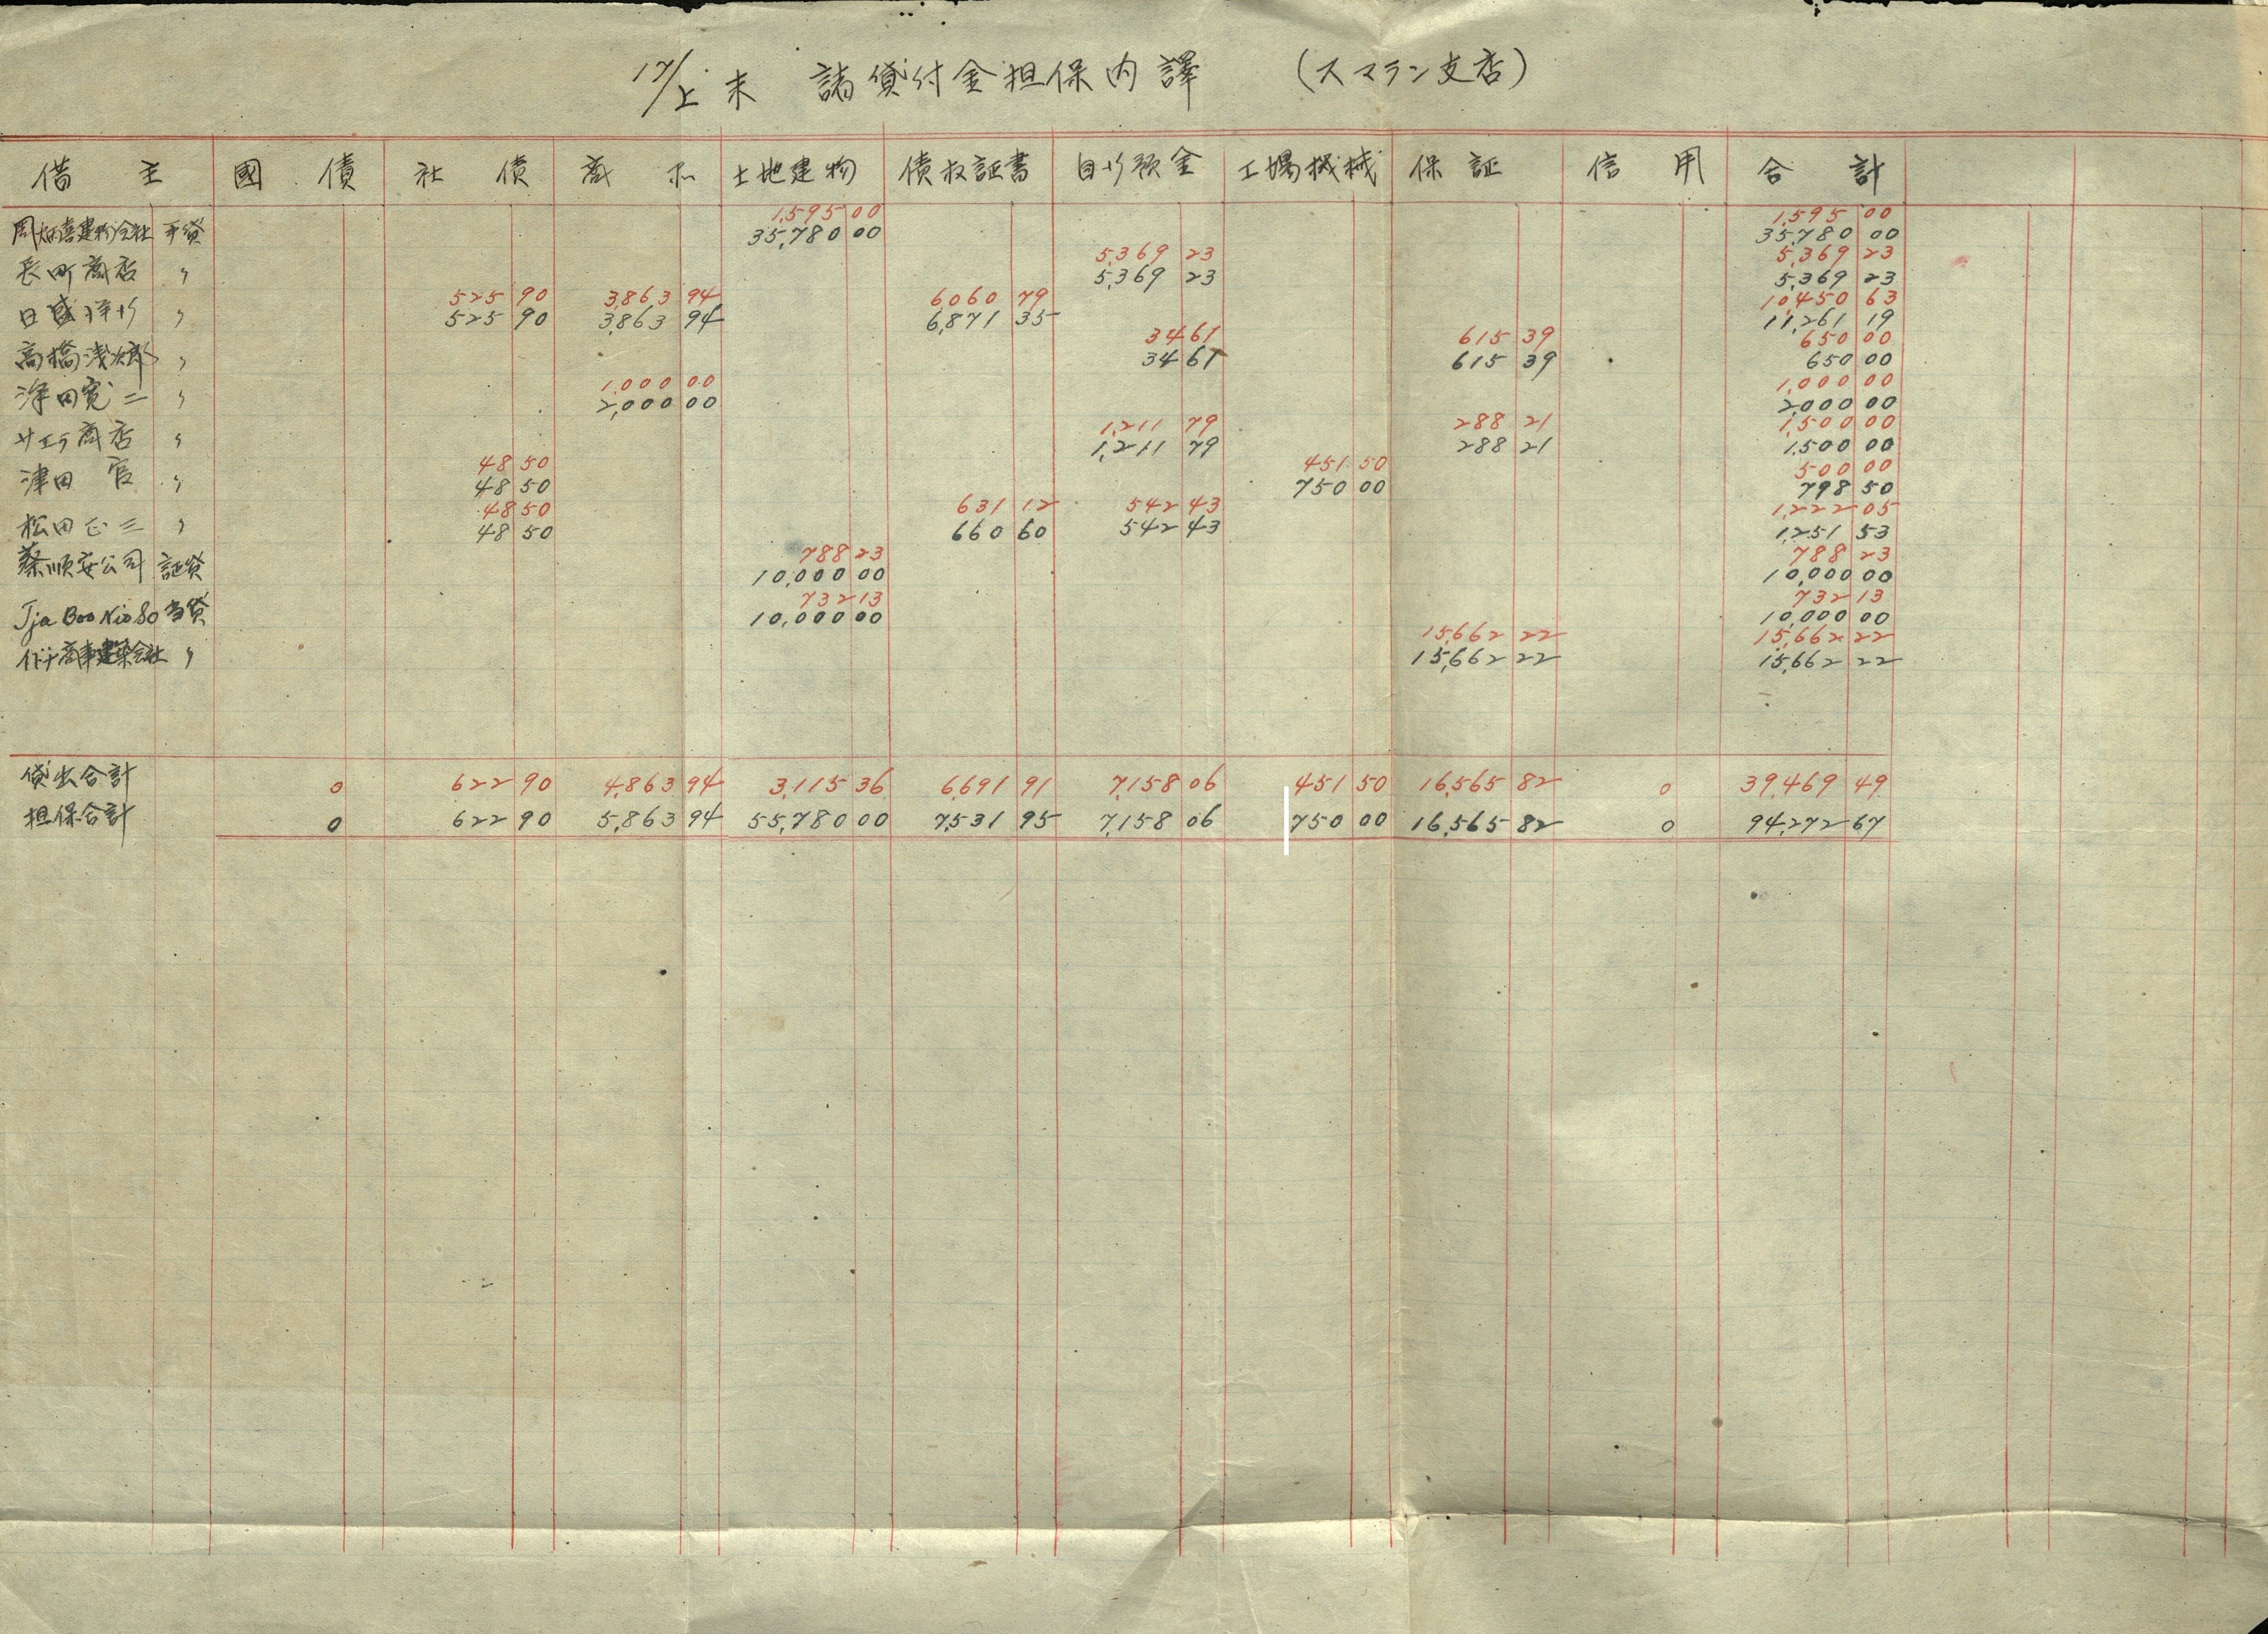 17/上末 諸貸付金担保内譯 (スマラン支店)
借主 國債 社債 商品 土地建物 債权証書 自行預金 工場機械 保証 信用 合計
1,595 00 1,595 00
周炳喜建物会社 手貸 35,780 00 35,780 00
5,369 23 5,369 23
長町商店 〃 5,369 23 5,369 23
525 90 3,863 94 6060 79 10,450 63
日盛洋行 〃 525 90 3,863 94 6,871 35 11,261 19
34 61 615 39 650 00
高橋浅次郎 〃 34 61 615 39 650 00
1,000 00 1,000 00
津田寛二 〃 2,000 00 2,000 00
1,211 79 288 21 1,500 00
サエラ商店 〃 1,211 79 288 21 1,500 00
48 50 451 50 500 00
津田官 〃 48 50 750 00 798 50
48 50 631 12 542 43 1,222 05
松田正三 〃 48 50 660 60 542 43 1,251 53
788 23 788 23
蔡順安公司 証貸 10,000 00 10,000 00
732 13 732 13
Tja Boo Nio So 当貸 10,000 00 10,000 00
15,662 22 15,662 22
商事建築会社 〃 15,662 22 15,662 22
貸出合計 0 622 90 4,863 94 3,115 36 6,691 91 7,158 06 451 50 16,565 82 0 39,469 49
担保合計 0 622 90 5,863 94 55,780 00 7,531 95 7,158 06 750 00 16,565 82 0 94,272 67